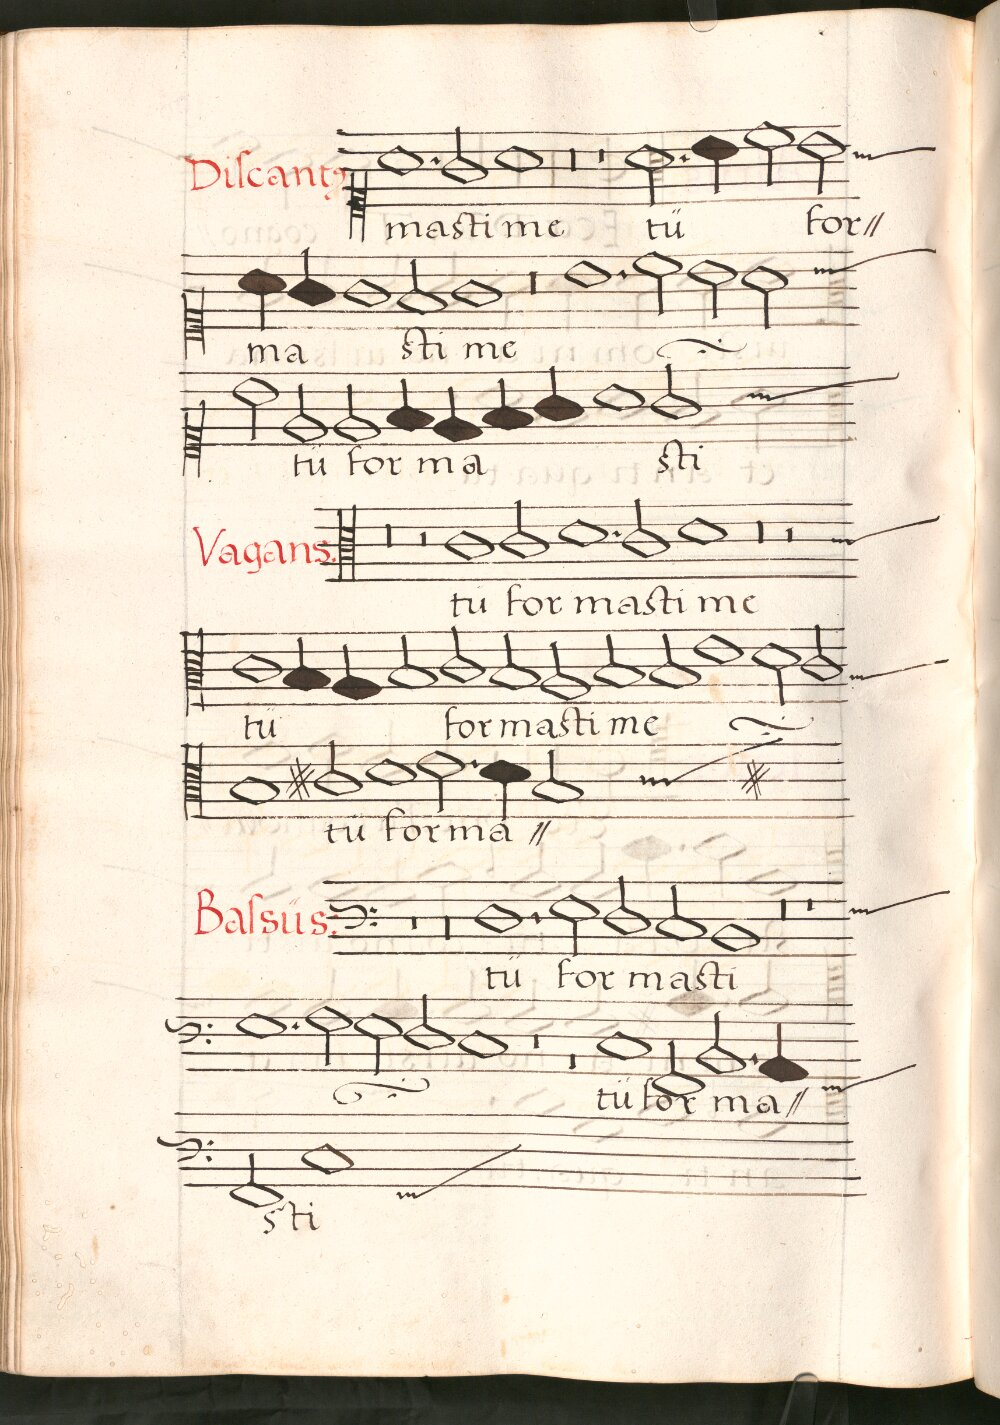 Discantꝰ
masti me tŭ for//
ma sti me
tŭ for ma sti
Vagans.
tŭ for masti me
tŭ for masti me
tŭ forma //
Bassŭs.
tŭ for masti
tŭ for ma//
sti